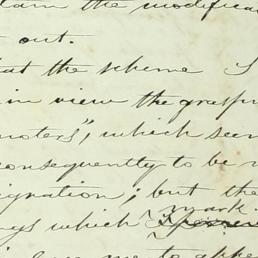 the modifica
out.
at the scheme S
in view the grasp
moters", which seem
consequently to be
ignation; but the
mark
ys which
me to appe